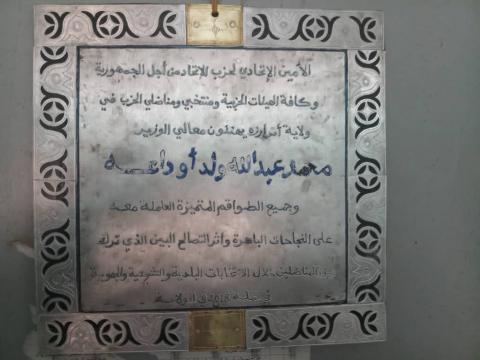 الأمين الإتحادي لحزب الاتحاد من أجل الجمهورية
وكافة الهيئات الحزبية ومنتخبي ومناضلي الحزب في
ولاية أترارزه يهنئون معالي الوزير
محمد عبد الله ولد أوداعـــه
وجميع الطواقم المتميزة العاملة معـه
على النجاحات الباهرة واثر التصالح البين الذي ترك
المناضلين خلال الانتخابات البلدية والتشريعية والجهوية
في 2018 في الولايـة